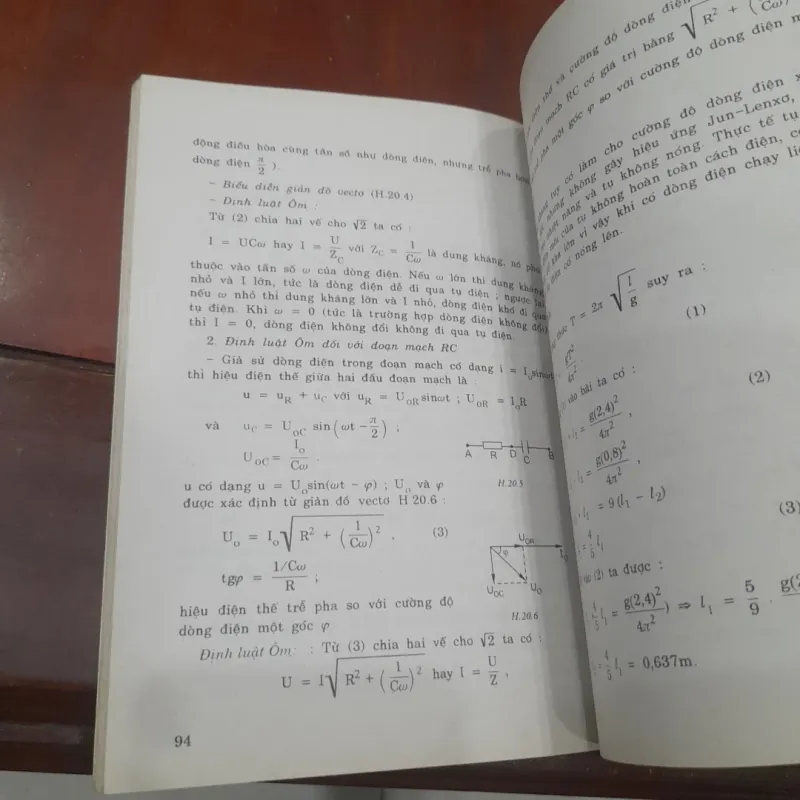 động điều hòa cùng tần số như dòng điện, nhưng trễ pha hơn
dòng điện π/2 ).
- Biểu diễn giản đồ vectơ (H.20.4)
- Định luật Ôm :
Từ (2) chia hai vế cho √2 ta có :
I = UCω hay I = U/Z_C với Z_C = 1/Cω là dung kháng, nó phụ
thuộc vào tần số ω của dòng điện. Nếu ω lớn thì dung kháng
nhỏ và I lớn, tức là dòng điện dễ đi qua tụ điện ; ngược lại
nếu ω nhỏ thì dung kháng lớn và I nhỏ, dòng điện khó đi qua
tụ điện. Khi ω = 0 (tức là trường hợp dòng điện không đổi)
thì I = 0, dòng điện không đổi không đi qua tụ điện.
2. Định luật Ôm đối với đoạn mạch RC
- Giả sử dòng điện trong đoạn mạch có dạng i = I_o sinωt
thì hiệu điện thế giữa hai đầu đoạn mạch là
u = u_R + u_C với u_R = U_OR sinωt ; U_OR = I_o R
và u_C = U_OC sin(ωt - π/2) ;
U_OC = I_o/Cω .
A R D C B
H.20.5
u có dạng u = U_o sin(ωt - φ) ; U_o và φ
được xác định từ giản đồ vectơ H 20.6 :
U_o = I_o √(R² + (1/Cω)²) , (3)
tgφ = (1/Cω)/R ;
U_OR I_o
φ
U_OC U_o
H.20.6
hiệu điện thế trễ pha so với cường độ
dòng điện một góc φ
Định luật Ôm: : Từ (3) chia hai vế cho √2 ta có :
U = I√(R² + (1/Cω)²) hay I = U/Z ,
94
thế và cường độ dòng điện
mạch RC có giá trị bằng √(R² + (1/Cω
pha một góc φ so với cường độ dòng điện
tuy có làm cho cường độ dòng điện
nhưng không gây hiệu ứng Jun-Lenxơ,
nhiệt năng và tụ không nóng. Thực tế tụ
của tụ không hoàn toàn cách điện,
lớn vì vậy khi có dòng điện chạy
điện có nóng lên.
thức T = 2π √(l/g) suy ra :
(1)
gT²/4π² .
vào bài ta có :
(2)
= g(2,4)²/4π² ,
= g(0,8)²/4π² ,
l₁ = 9(l₁ - l₂)
(3)
= 4/5 l₁
(2) ta được :
4/5 l₁ = g(2,4)²/4π²) ⇒ l₁ = 5/9 .
= 4/5 l₁ = 0,637m.